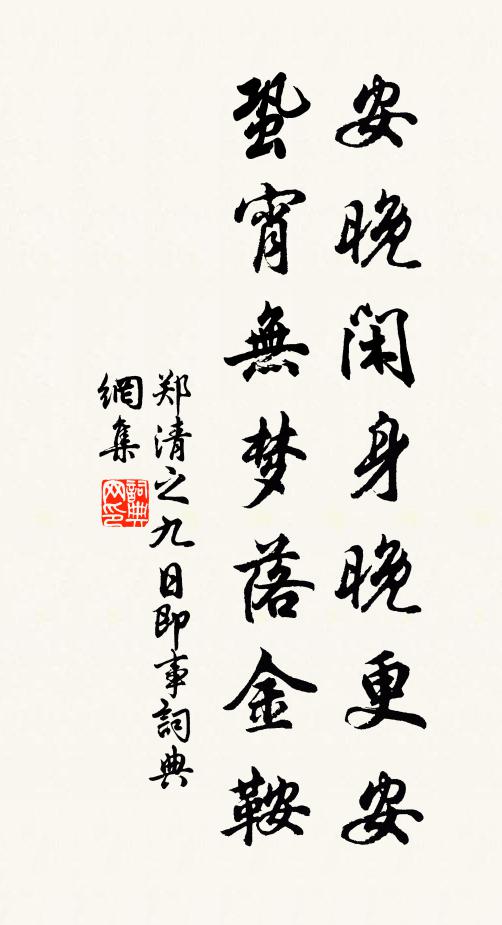 安晚閑身晚更安
蛩宵無梦落金鞍
郑清之九日即事詞典
網集
詞典
网印